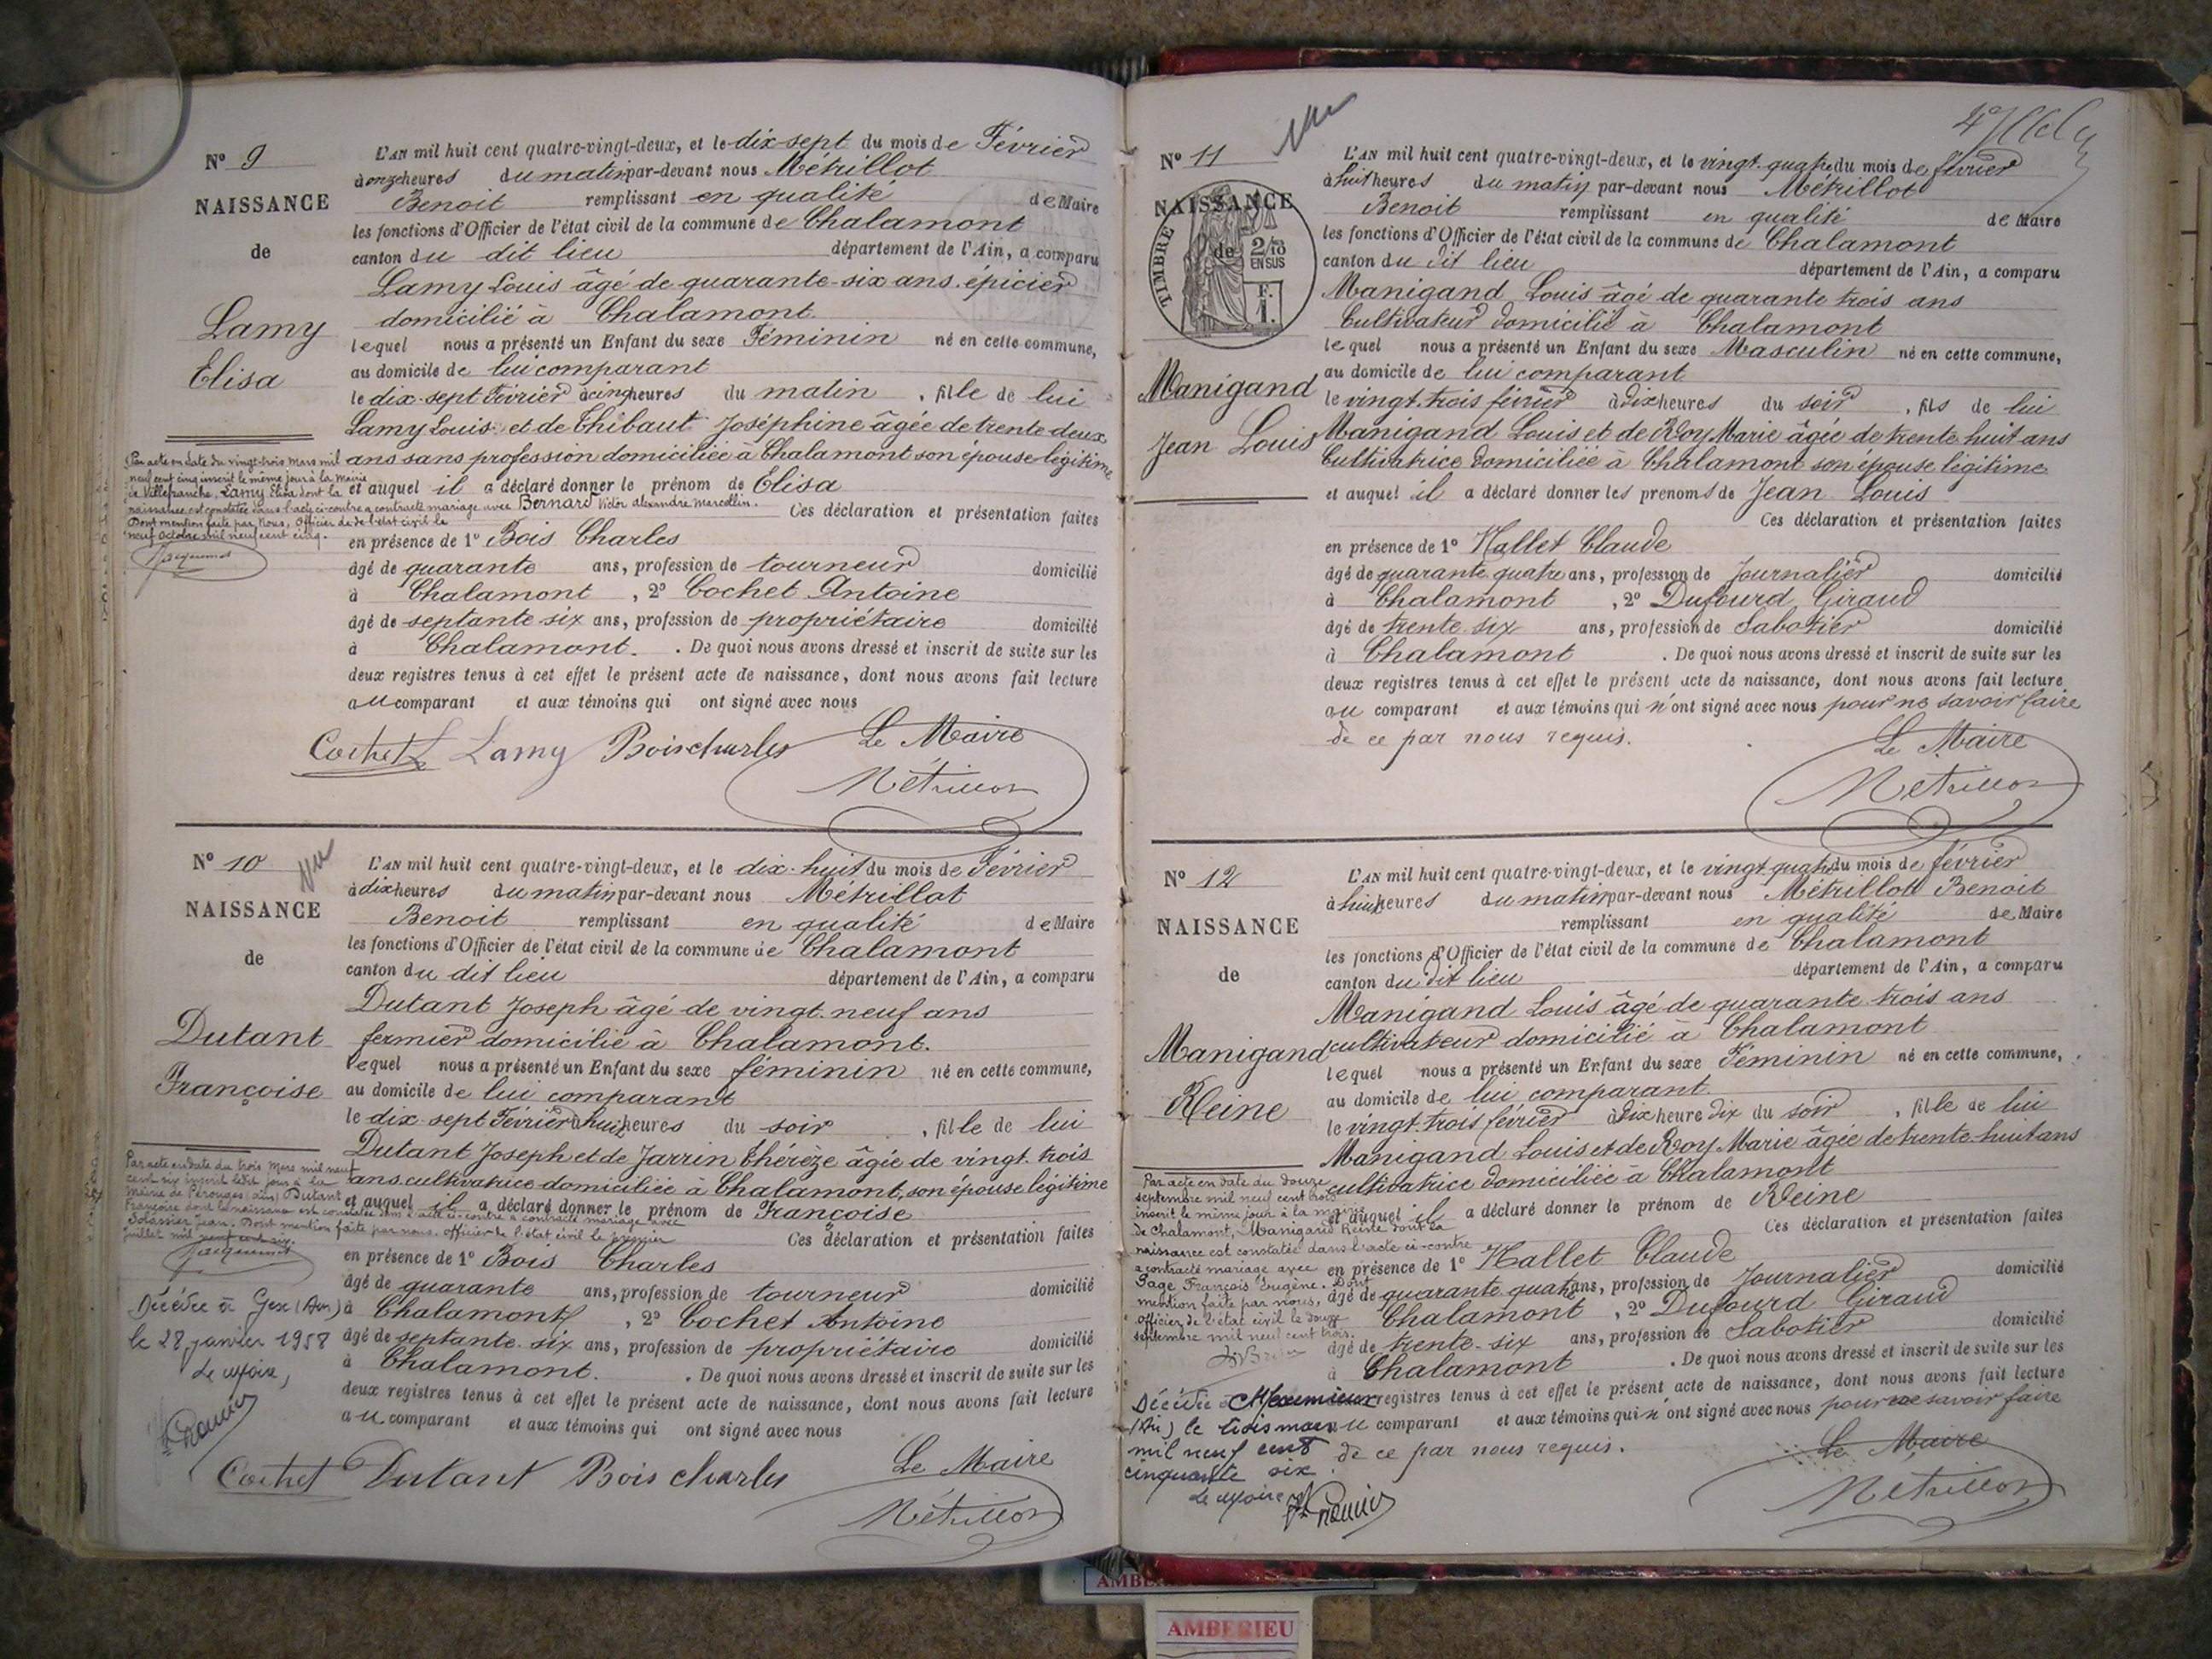 N° 9
NAISSANCE
de
Lamy
Elisa
L'AN mil huit cent quatre-vingt-deux, et le dix-sept du mois de Février
à onze heures du matin par-devant nous Métrillot
Benoit remplissant en qualité de Maire
les fonctions d'Officier de l'état civil de la commune de Chalamont
canton du dit lieu département de l'Ain, a comparu
Lamy Louis âgé de quarante-six ans épicier
domicilié à Chalamont.
lequel nous a présenté un Enfant du sexe Féminin né en cette commune,
au domicile de lui comparant
le dix-sept Février à cinq heures du matin, fille de lui
Lamy Louis et de Thibaut Joséphine âgée de trente deux
ans sans profession domiciliée à Chalamont son épouse légitime
et auquel il a déclaré donner le prénom de Elisa
Ces déclaration et présentation faites
en présence de 1° Bois Charles
âgé de quarante ans, profession de tourneur domicilié
à Chalamont, 2° Cochet Antoine
âgé de septante six ans, profession de propriétaire domicilié
à Chalamont. De quoi nous avons dressé et inscrit de suite sur les
deux registres tenus à cet effet le présent acte de naissance, dont nous avons fait lecture
au comparant et aux témoins qui ont signé avec nous
Cochet Lamy Bois charles Le Maire
Métrillot
Par acte en date du vingt-trois mars mil
neuf cent cinq inscrit le même jour à la Mairie
de Villefranche, Lamy Elisa dont la
naissance est constatée dans l'acte ci-contre a contracté mariage avec Bernard Victor Alexandre Marcellin.
Dont mention faite par Nous, Officier de de l'état civil le
neuf Octobre mil neuf cent cinq.
Jacquemet
N° 10
Vu
NAISSANCE
de
Dutant
Françoise
L'AN mil huit cent quatre-vingt-deux, et le dix-huit du mois de Février
à dix heures du matin par-devant nous Métrillot
Benoit remplissant en qualité de Maire
les fonctions d'Officier de l'état civil de la commune de Chalamont
canton du dit lieu département de l'Ain, a comparu
Dutant Joseph âgé de vingt-neuf ans
fermier domicilié à Chalamont.
lequel nous a présenté un Enfant du sexe féminin né en cette commune,
au domicile de lui comparant
le dix-sept Février à huit heures du soir, fille de lui
Dutant Joseph et de Jarrin Thérèze âgée de vingt-trois
ans cultivatrice domiciliée à Chalamont, son épouse légitime
et auquel il a déclaré donner le prénom de Françoise
Ces déclaration et présentation faites
en présence de 1° Bois Charles
âgé de quarante ans, profession de tourneur domicilié
à Chalamont, 2° Cochet Antoine
âgé de septante six ans, profession de propriétaire domicilié
à Chalamont. De quoi nous avons dressé et inscrit de suite sur les
deux registres tenus à cet effet le présent acte de naissance, dont nous avons fait lecture
au comparant et aux témoins qui ont signé avec nous
Cochet Dutant Bois charles Le Maire
Métrillot
Par acte en date du trois Mars mil neuf
cent six inscrit ledit jour à la
Mairie de Pérouges (Ain) Dutant
Françoise dont la naissance est constatée dans l'acte ci-contre a contracté mariage avec
Jean. Dont mention faite par nous, officier de l'état civil le premier
juillet mil neuf cent six.
Jacquemet
Décédée à Gex (Ain)
le 28 janvier 1958
Le Maire,
N° 11
Vu
NAISSANCE
de
TIMBRE
2/10
EN SUS
F.
1.
Manigand
Jean Louis
L'AN mil huit cent quatre-vingt-deux, et le vingt-quatre du mois de février
à huit heures du matin par-devant nous Métrillot
Benoit remplissant en qualité de Maire
les fonctions d'Officier de l'état civil de la commune de Chalamont
canton du dit lieu département de l'Ain, a comparu
Manigand Louis âgé de quarante trois ans
Cultivateur domicilié à Chalamont
lequel nous a présenté un Enfant du sexe Masculin né en cette commune,
au domicile de lui comparant
le vingt-trois février à dix heures du soir, fils de lui
Manigand Louis et de Roy Marie âgée de trente huit ans
Cultivatrice domiciliée à Chalamont son épouse légitime
et auquel il a déclaré donner les prénoms de Jean Louis
Ces déclaration et présentation faites
en présence de 1° Hallet Claude
âgé de quarante quatre ans, profession de Journalier domicilié
à Chalamont, 2° Dufourd Giraud
âgé de trente-six ans, profession de Sabotier domicilié
à Chalamont. De quoi nous avons dressé et inscrit de suite sur les
deux registres tenus à cet effet le présent acte de naissance, dont nous avons fait lecture
au comparant et aux témoins qui n'ont signé avec nous pour ne savoir faire
de ce par nous requis.
Le Maire
Métrillot
N° 12
NAISSANCE
de
Manigand
Reine
L'AN mil huit cent quatre-vingt-deux, et le vingt-quatre du mois de février
à huit heures du matin par-devant nous Métrillott Benoit
remplissant en qualité de Maire
les fonctions d'Officier de l'état civil de la commune de Chalamont
canton du dit lieu département de l'Ain, a comparu
Manigand Louis âgé de quarante trois ans
cultivateur domicilié à Chalamont
lequel nous a présenté un Enfant du sexe Féminin né en cette commune,
au domicile de lui comparant
le vingt-trois février à dix heure dix du soir, fille de lui
Manigand Louis et de Roy Marie âgée de trente-huit ans
cultivatrice domiciliée à Chalamont
et auquel il a déclaré donner le prénom de Reine
Ces déclaration et présentation faites
en présence de 1° Hallet Claude
âgé de quarante quatre ans, profession de Journalier domicilié
Chalamont, 2° Dufourd Giraud
âgé de trente-six ans, profession de Sabotier domicilié
à Chalamont. De quoi nous avons dressé et inscrit de suite sur les
registres tenus à cet effet le présent acte de naissance, dont nous avons fait lecture
au comparant et aux témoins qui n'ont signé avec nous pour ne savoir faire
de ce par nous requis.
Le Maire
Métrillot
Par acte en date du douze
septembre mil neuf cent trois
inscrit le même jour à la mairie
de Chalamont, Manigand Reine dont la
naissance est constatée dans l'acte ci-contre
a contracté mariage avec
Page François Eugène. Dont
mention faite par nous,
officier de l'état civil le douze
septembre mil neuf cent trois.
Décédée à Meximieux
(Ain) le trois mars
mil neuf cent
cinquante six.
Le Maire
AMBERIEU